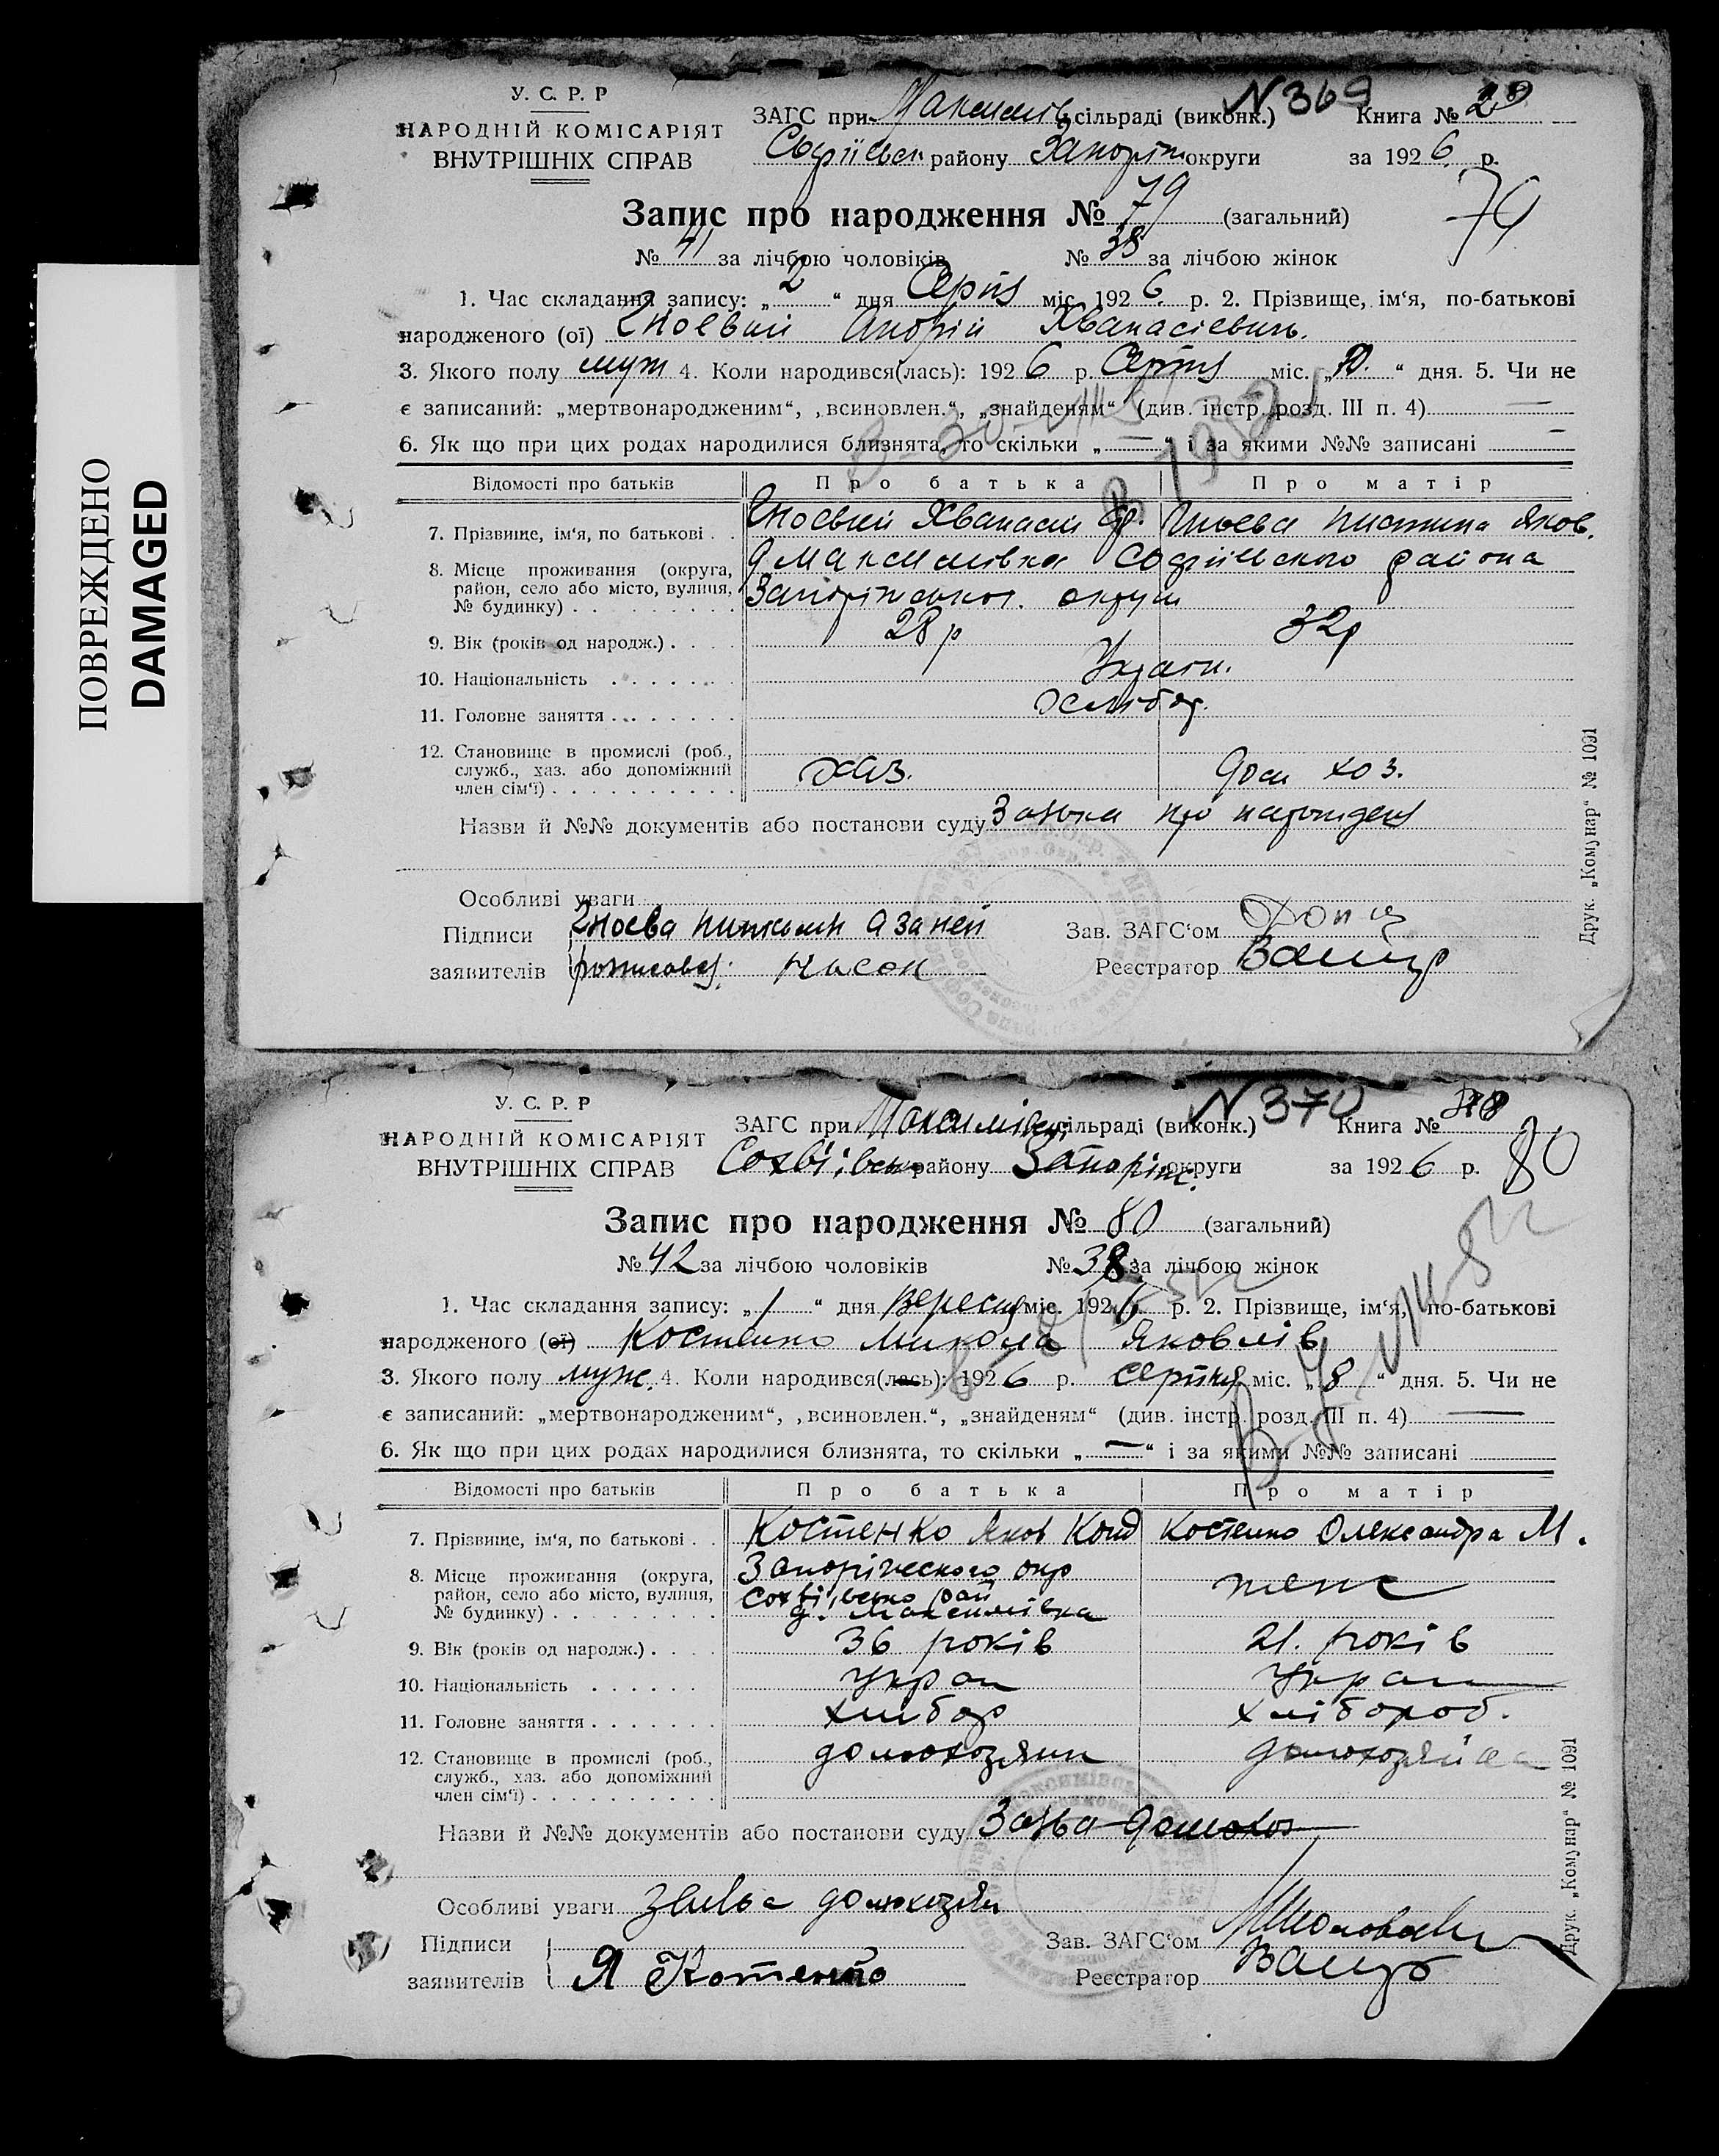 ПОВРЕЖДЕНО
DAMAGED
У. С. Р. Р
НАРОДНІЙ КОМІСАРІЯТ
ВНУТРІШНІХ СПРАВ
ЗАГС при сільраді (виконк.) N 369 Книга № 29
району округи за 1926 р.
79
Запис про народження № 79 (загальний)
№ 41 за лічбою чоловіків № 38 за лічбою жінок
1. Час складання запису: „2“ дня міс. 1926 р. 2. Прізвище, ім‘я, по-батькові
народженого (ої) Гноевий Андрій Хванасіевич.
3. Якого полу муж 4. Коли народився(лась): 1926 р. міс. „ “ дня. 5. Чи не
є записаний: „мертвонародженим“, „всиновлен.“, „знайденям“ (див. інстр. розд. III п. 4) —
6. Як що при цих родах народилися близнята, то скільки „—“ і за якими №№ записані —
Відомості про батьків Про батька Про матір
7. Прізвище, ім‘я, по батькові . . Гноевий Хванасій Гноева Яков.
8. Місце проживання (округа, район, село або місто, вулиця, № будинку) . . . Максимівка Софіївського района
округи
9. Вік (років од народж.) . . . . 28 р 32 р
10. Національність . . . . . . Украін.
11. Головне заняття . . . . . . . Хлібор.
12. Становище в промислі (роб., служб., хаз. або допоміжний член сім‘ї) . . . Хаз. Дом хоз.
Назви й №№ документів або постанови суду Заява про
Особливі уваги
Підписи Гноева а за неей Зав. ЗАГС‘ом
заявителів Реєстратор
Друк. „Комунар“ № 1091
У. С. Р. Р
НАРОДНІЙ КОМІСАРІЯТ
ВНУТРІШНІХ СПРАВ
ЗАГС при Максимівск сільраді (виконк.) N 370 Книга №
Сохвіівськ району Запоріж. округи за 1926 р. 80
Запис про народження № 80 (загальний)
№ 42 за лічбою чоловіків № 38 за лічбою жінок
1. Час складання запису: „1“ дня Вересня міс. 1926 р. 2. Прізвище, ім‘я, по-батькові
народженого (ої) Костенко Микола Яковлів
3. Якого полу муж. 4. Коли народився(лась): 1926 р. серпня міс. „8“ дня. 5. Чи не
є записаний: „мертвонародженим“, „всиновлен.“, „знайденям“ (див. інстр. розд. III п. 4) —
6. Як що при цих родах народилися близнята, то скільки „—“ і за якими №№ записані
Відомості про батьків Про батька Про матір
7. Прізвище, ім‘я, по батькові . . Костенко Яков Конд Костенко Олександра М.
8. Місце проживання (округа, район, село або місто, вулиця, № будинку) . . . Запоріческого окр
Сохвіівсько рай
д. Максимівка
9. Вік (років од народж.) . . . . 36 років 21. років
10. Національність . . . . . . Украи Украи
11. Головне заняття . . . . . . . хлибор хлібороб.
12. Становище в промислі (роб., служб., хаз. або допоміжний член сім‘ї) . . . домохозяин домохозяйка
Назви й №№ документів або постанови суду Заява домохоз
Особливі уваги домохозяи
Підписи Зав. ЗАГС‘ом
заявителів Я Костенко Реєстратор
Друк. „Комунар“ № 1091